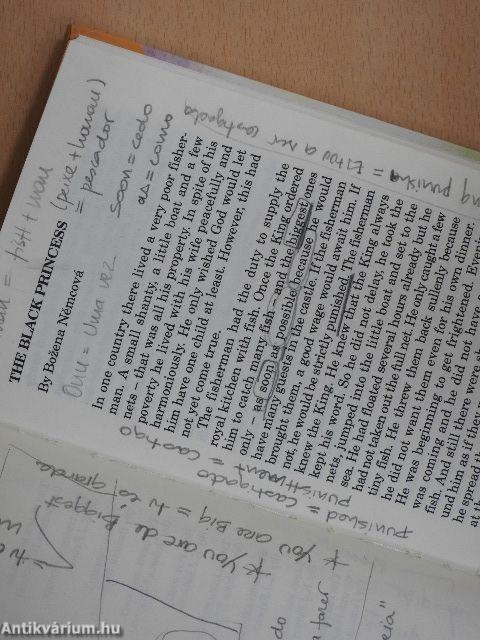 ng punisha = Estou a ser castigado
man = fish + man (peixe + homem)
= pescador
THE BLACK PRINCESS
By Božena Němcová
soon = cedo
as = como
One = Uma vez
In one country there lived a very poor fisher-
man. A small shanty, a little boat and a few
nets – that was all his property. In spite of his
poverty he lived with his wife peacefully and
harmoniously. He only wished God would let
him have one child at least. However, this had
not yet come true.
The fisherman had the duty to supply the
royal kitchen with fish. Once the King ordered
him to catch many fish – and the biggest ones
only – as soon as possible because he would
have many guests in the castle. If the fisherman
brought them, a good wage would await him. If
not, he would be strictly punished. The fisherman
knew the King. He knew that the King always
kept his word. So he did not delay, he took the
nets, jumped into the little boat and set to the
sea. He had floated several hours already but he
had not taken out the full net. He only caught a few
tiny fish. He threw them back sullenly because
he did not want them even for his own dinner.
He was beginning to get frightened. Even
was coming and he did not have
fish. And still there were
und him as if they
he spread
at th
punished = castigado
punishment = castigo
* You are Big = tu és grande
* You are de Biggest
eia"
Antikvárium.hu